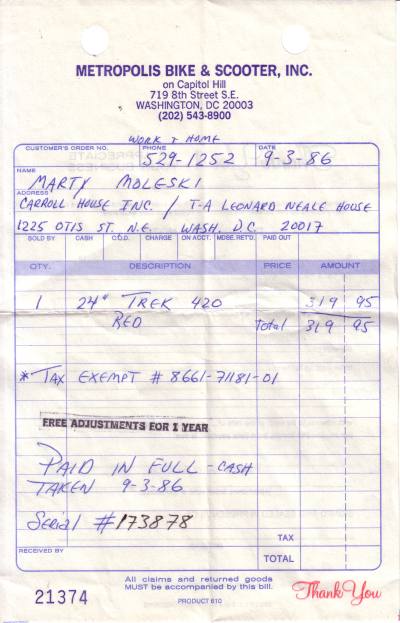 METROPOLIS BIKE & SCOOTER, INC.
on Capitol Hill
719 8th Street S.E.
WASHINGTON, DC 20003
(202) 543-8900
WORK & HOME
CUSTOMER'S ORDER NO. PHONE DATE
529-1252 9-3-86
NAME
MARTY MOLESKI
ADDRESS
CARROLL HOUSE INC. / T-A LEONARD NEALE HOUSE
1225 OTIS ST. N.E. WASH. D.C. 20017
SOLD BY CASH C.O.D. CHARGE ON ACCT. MDSE. RET'D. PAID OUT
QTY. DESCRIPTION PRICE AMOUNT
1 24" TREK 420 319 95
RED Total 319 95
* TAX EXEMPT # 8661-71181-01
FREE ADJUSTMENTS FOR 1 YEAR
PAID IN FULL - CASH
TAKEN 9-3-86
Serial #173878
TAX
RECEIVED BY TOTAL
21374
All claims and returned goods
MUST be accompanied by this bill.
Thank You
PRODUCT 610